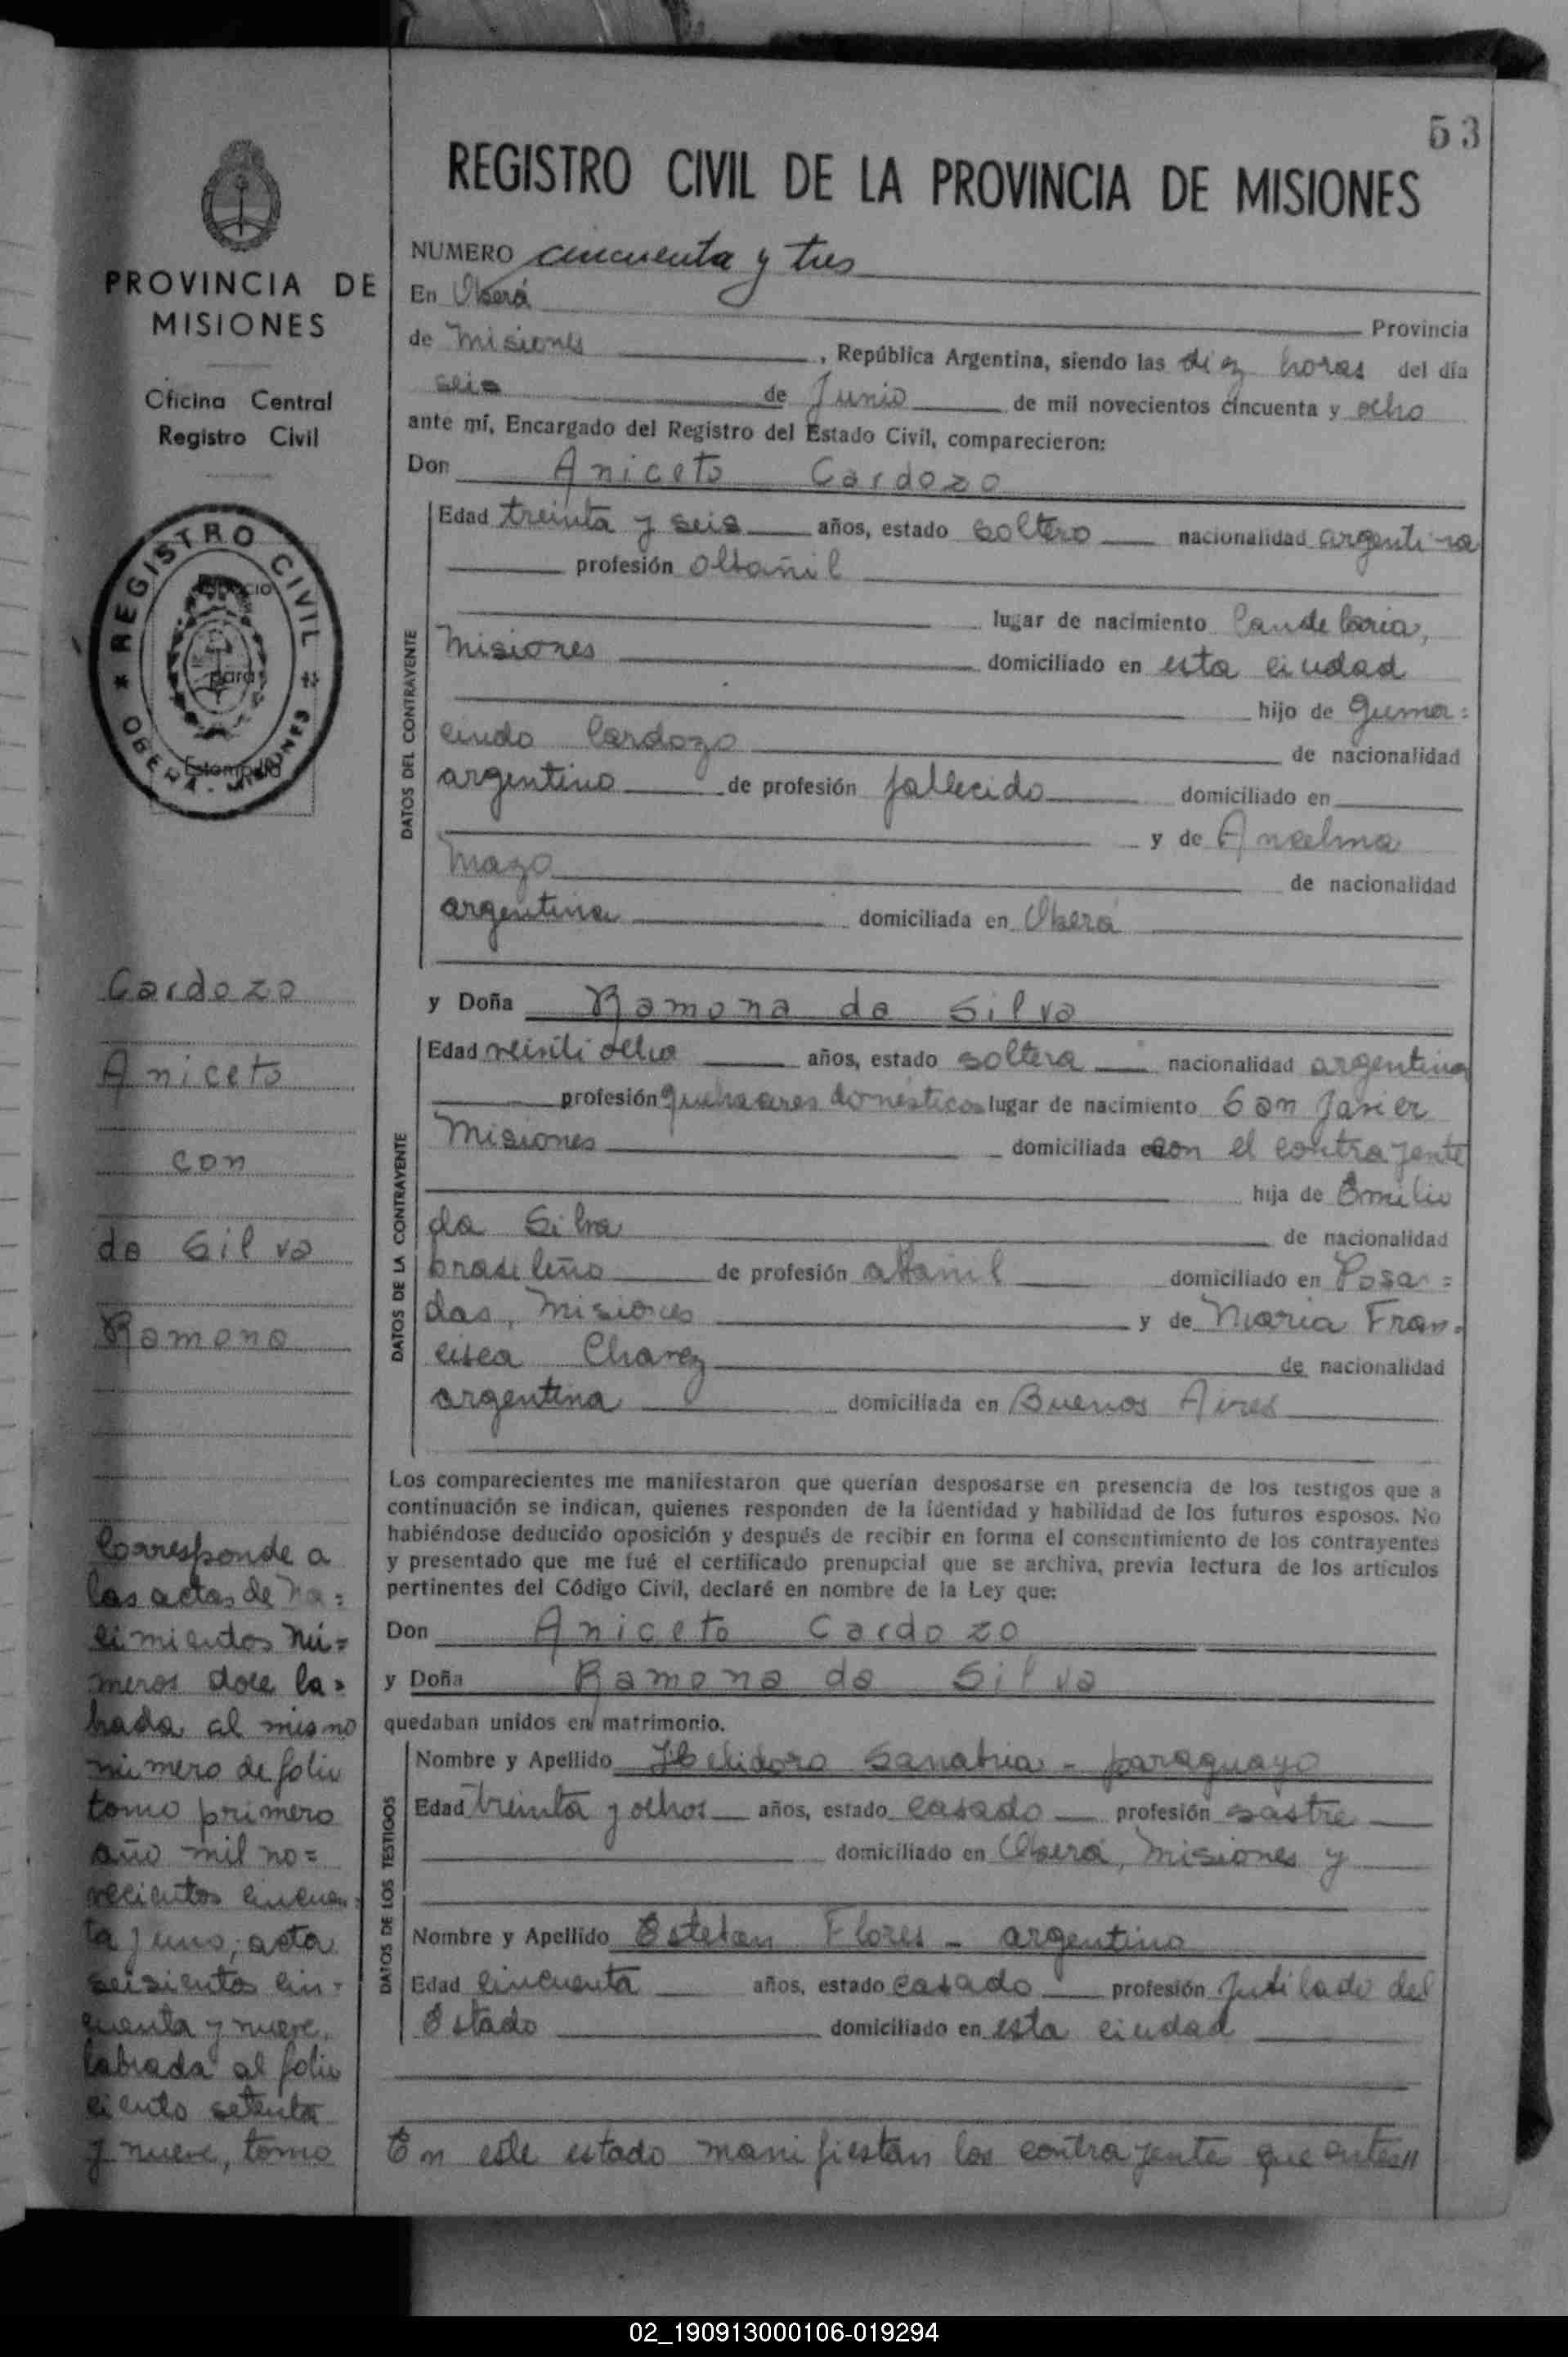 53
REGISTRO CIVIL DE LA PROVINCIA DE MISIONES
PROVINCIA DE
MISIONES
Oficina Central
Registro Civil
REGISTRO CIVIL
OBERA - MISIONES
Espacio
para
Estampilla
Cardozo
Aniceto
con
da Silva
Ramona
Corresponde a
las actas de na=
cimientos nú=
meros doce la=
brada al mismo
número de folio
tomo primero
año mil no=
vecientos cincuen=
ta y uno; acta
seiscientos cin=
cuenta y nueve,
labrada al folio
ciento setenta
y nueve, tomo
NUMERO cincuenta y tres
En Oberá Provincia
de Misiones, República Argentina, siendo las diez horas del día
seis de Junio de mil novecientos cincuenta y ocho
ante mí, Encargado del Registro del Estado Civil, comparecieron:
Don Aniceto Cardozo
DATOS DEL CONTRAYENTE
Edad treinta y seis años, estado soltero nacionalidad argentina
profesión albañil
lugar de nacimiento Candelaria,
Misiones domiciliado en esta ciudad
hijo de Gume=
cindo Cardozo de nacionalidad
argentino de profesión fallecido domiciliado en
y de Ancelma
Mazo de nacionalidad
argentina domiciliada en Oberá
y Doña Ramona da Silva
DATOS DE LA CONTRAYENTE
Edad veinti ocho años, estado soltera nacionalidad argentina
profesión quehaceres domésticos lugar de nacimiento San Javier
Misiones domiciliada con el contrayente
hija de Emilio
da Silva de nacionalidad
brasileño de profesión albañil domiciliado en Posa=
das, Misiones y de Maria Fran=
cisca Chavez de nacionalidad
argentina domiciliada en Buenos Aires
Los comparecientes me manifestaron que querían desposarse en presencia de los testigos que a
continuación se indican, quienes responden de la identidad y habilidad de los futuros esposos. No
habiéndose deducido oposición y después de recibir en forma el consentimiento de los contrayentes
y presentado que me fué el certificado prenupcial que se archiva, previa lectura de los artículos
pertinentes del Código Civil, declaré en nombre de la Ley que:
Don Aniceto Cardozo
y Doña Ramona da Silva
quedaban unidos en matrimonio.
DATOS DE LOS TESTIGOS
Nombre y Apellido Helidoro Sanabria - paraguayo
Edad treinta y ochos años, estado casado profesión sastre
domiciliado en Oberá, Misiones y
Nombre y Apellido Esteban Flores - argentino
Edad cincuenta años, estado casado profesión Jubilado del
Estado domiciliado en esta ciudad
En este estado manifiestan los contrayente que antes//
02_190913000106-019294